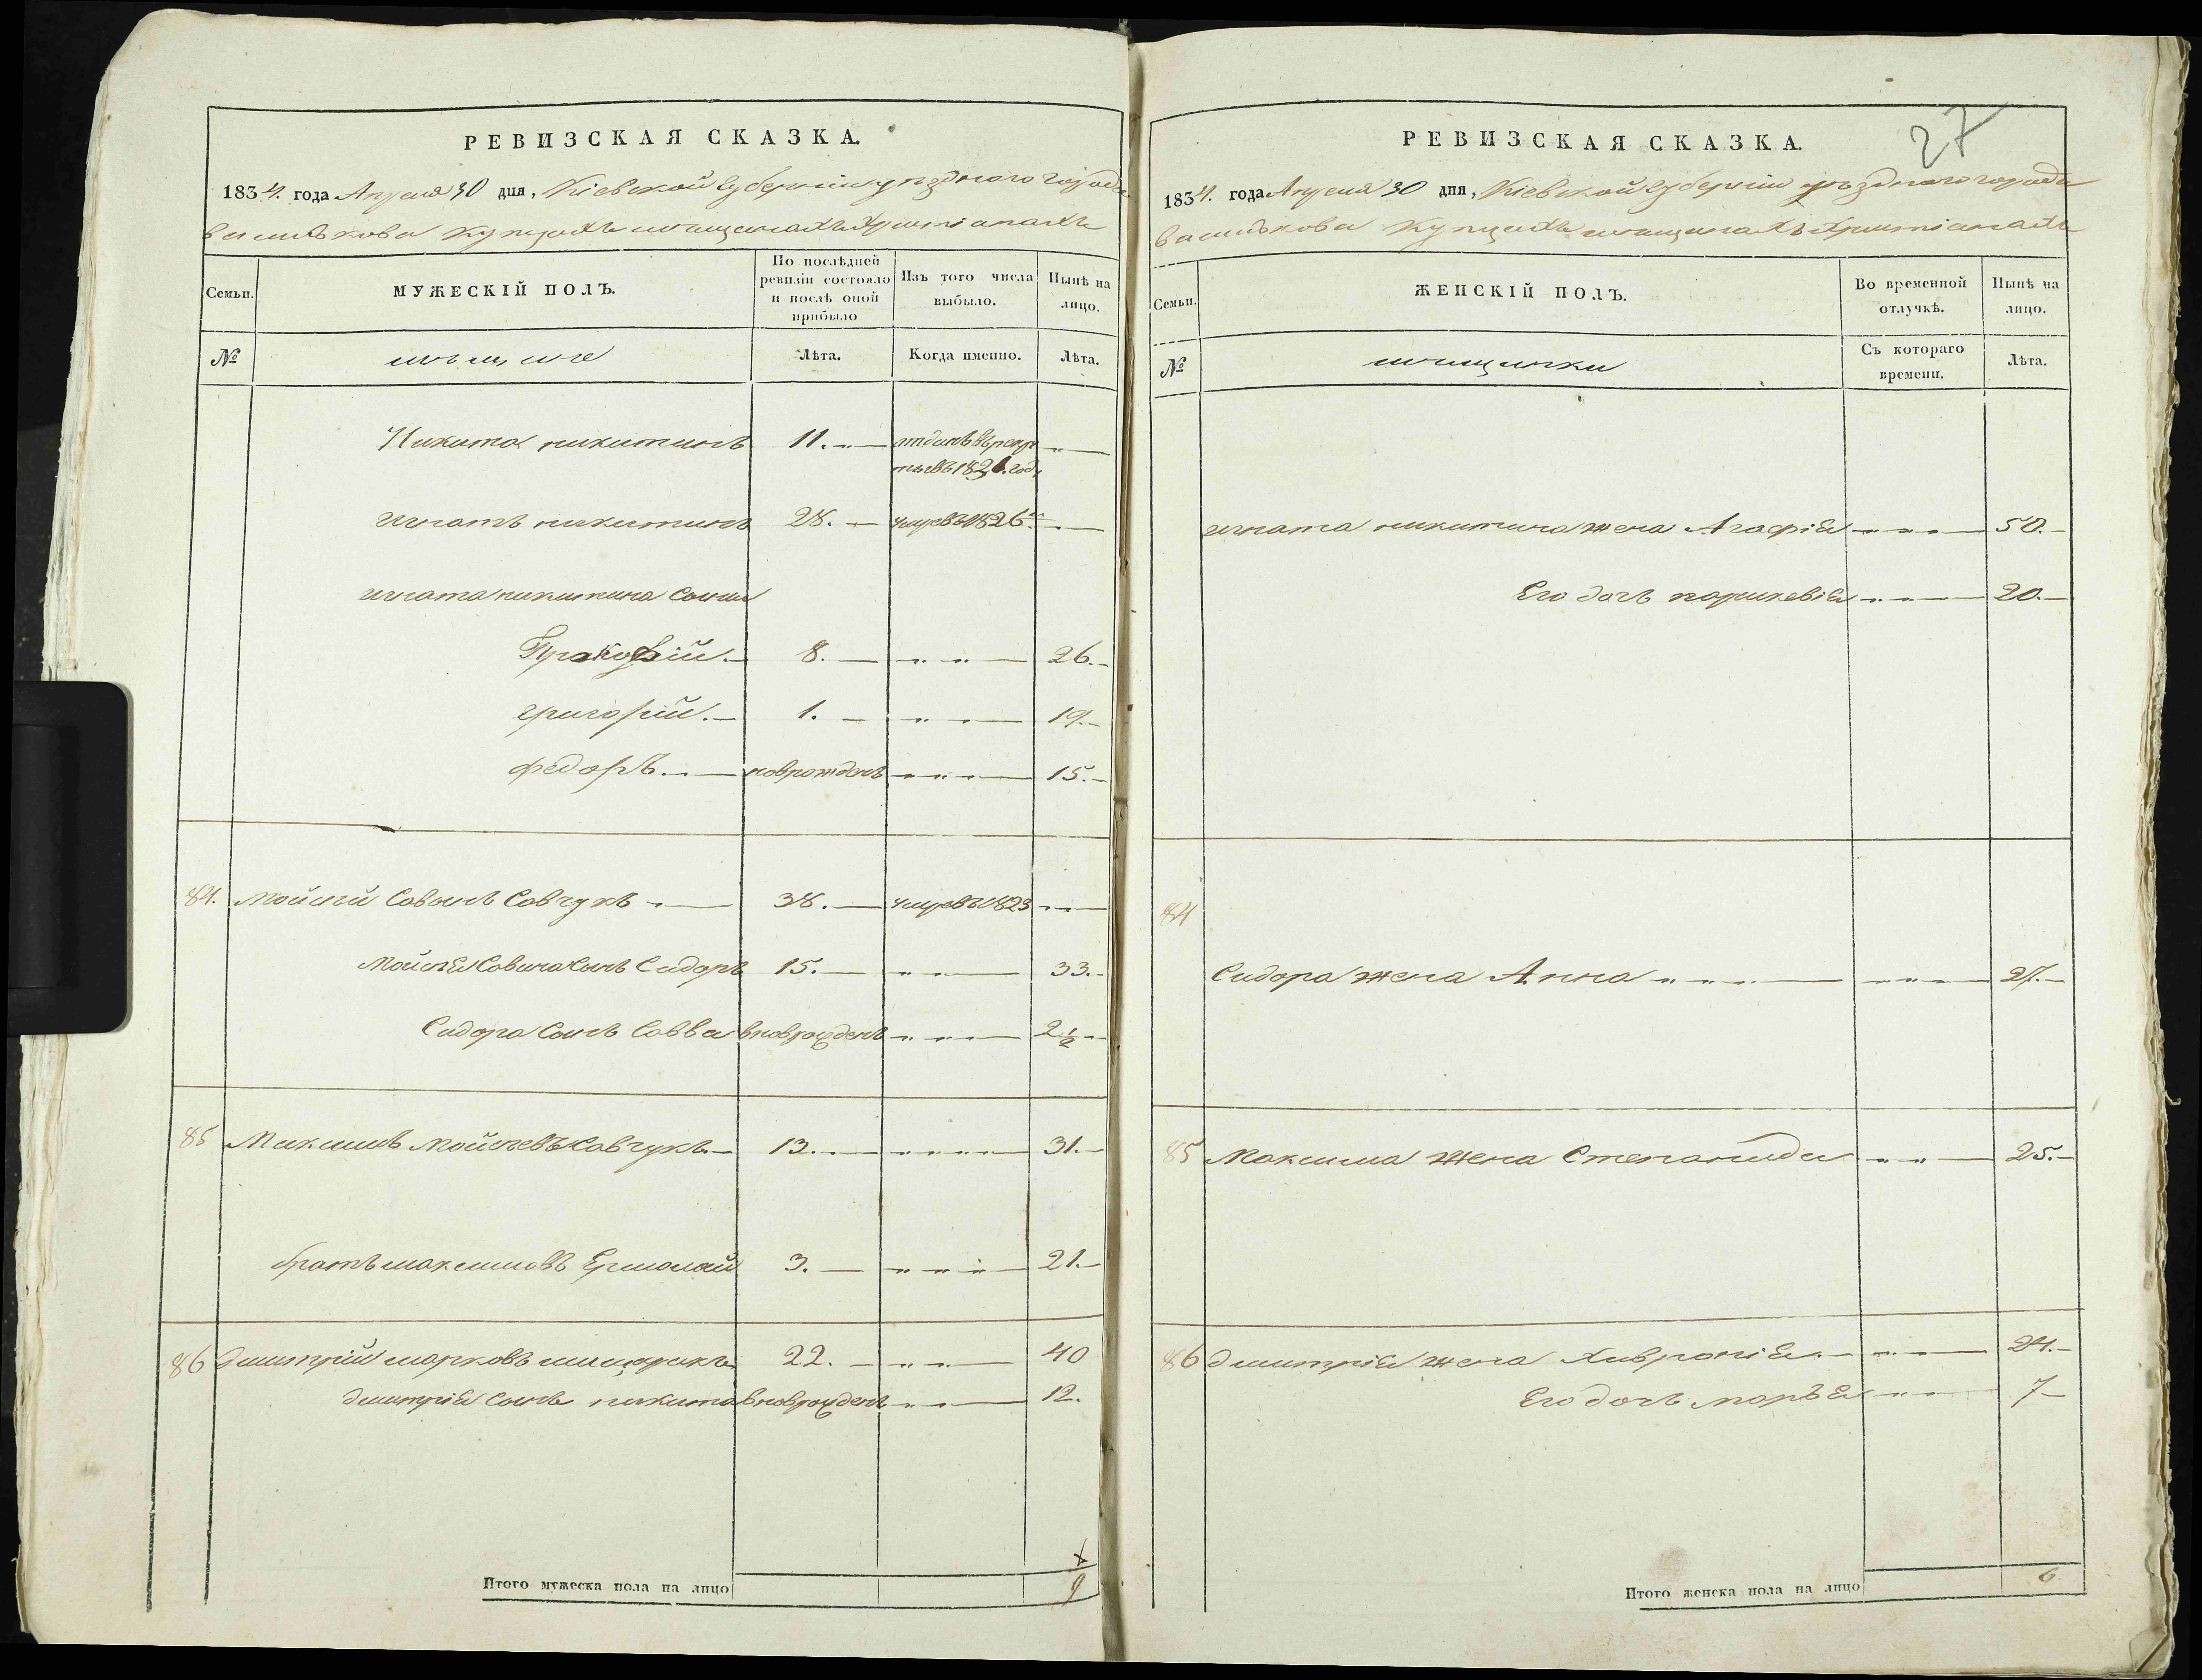 РЕВИЗСКАЯ СКАЗКА.
1834. года Апреля 30 дня, Кіевской Губерніи уѣзднаго города
василькова Купцахъ мѣщанахъ Християнахъ
Семьи.
МУЖЕСКІЙ ПОЛЪ.
По послѣдней ревизіи состояло и послѣ оной прибыло
Изъ того числа выбыло.
Нынѣ на лицо.
№
мѣщане
Лѣта.
Когда именно.
Лѣта.
Никита никитинъ 11. отданъ въ рекру
ты въ 1821. году
игнатъ никитинъ 28. умре въ 1826.
игната никитина Сыны
Прокофій. 8. 26.
григорій. 1. 19.
федоръ новрожденъ 15.
84. Мойсей Совинъ Совчукъ 38. умре въ 1823
Мойсѣя Совина Сынъ Сидоръ 15. 33.
Сидора Сынъ Савва вновьрожденъ 2 1/2
85 Максимъ Мойсѣевъ Совчукъ 13. 31.
братъ максимовъ Ермолай 3. 21.
86 Дмитрій марковъ 22. 40
дмитрія Сынъ никита вновьрожденъ 12.
Итого мужеска пола на лицо 9
27
РЕВИЗСКАЯ СКАЗКА.
1834. года Апреля 30 дня, Кіевской Губерніи уѣзднаго города
василькова Купцахъ мѣщанахъ Християнахъ
Семьи.
ЖЕНСКІЙ ПОЛЪ.
Во временной отлучкѣ.
Нынѣ на лицо.
№
мѣщанки
Съ котораго времени.
Лѣта.
игната никитина жена Агафія 50.
Его дочь парасковія 20.
84
Сидора жена Анна 27.
85 Максима жена Степанида 25.
86 дмитрія жена Хивронія 24.
Его дочь марья 7
Итого женска пола на лицо 6